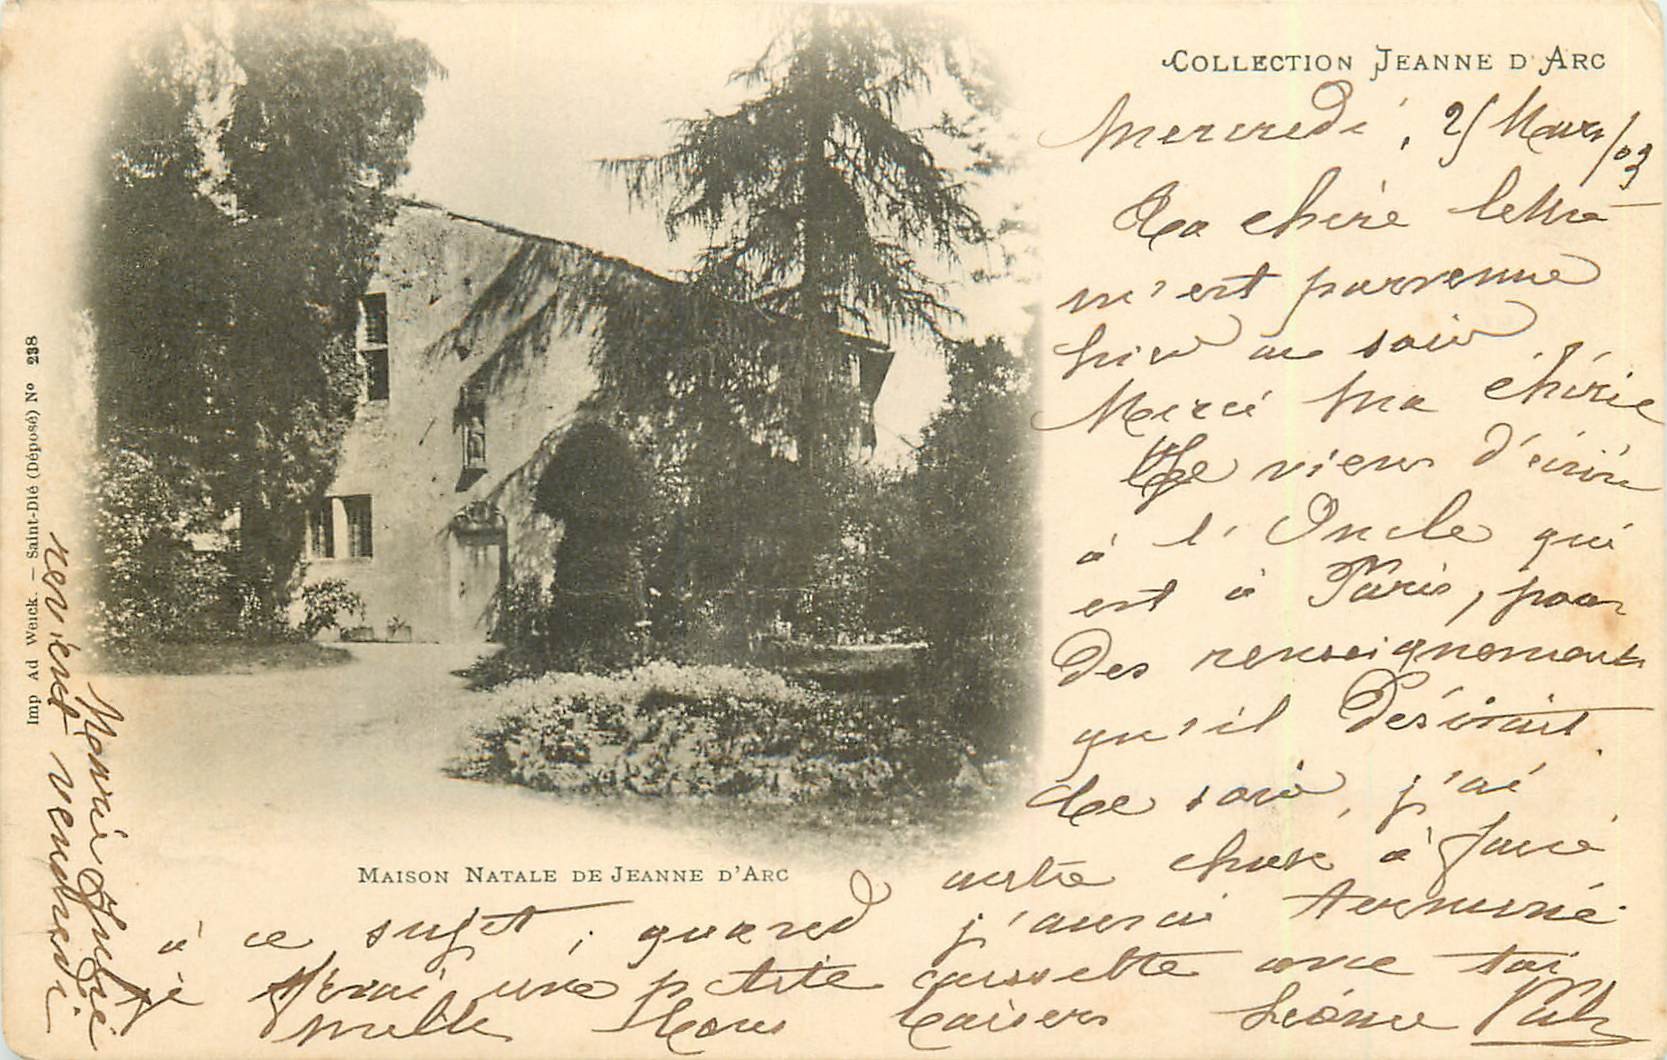 COLLECTION JEANNE D'ARC
Mercredi, 25 Mars/03
Ta chère lettre
m'est parvenue
hier au soir
Merci ma chérie
Je viens d'écrire
à l'Oncle qui
est à Paris, pour
des renseignements
qu'il désirait.
Ce soir, j'ai
autre chose à faire
à ce sujet, quand j'aurai terminé
je ferai une petite causette avec toi
mille bons baisers Léonie
Marie
revient vendredi
MAISON NATALE DE JEANNE D'ARC
Imp Ad Weick. – Saint-Dié (Déposé) No 238